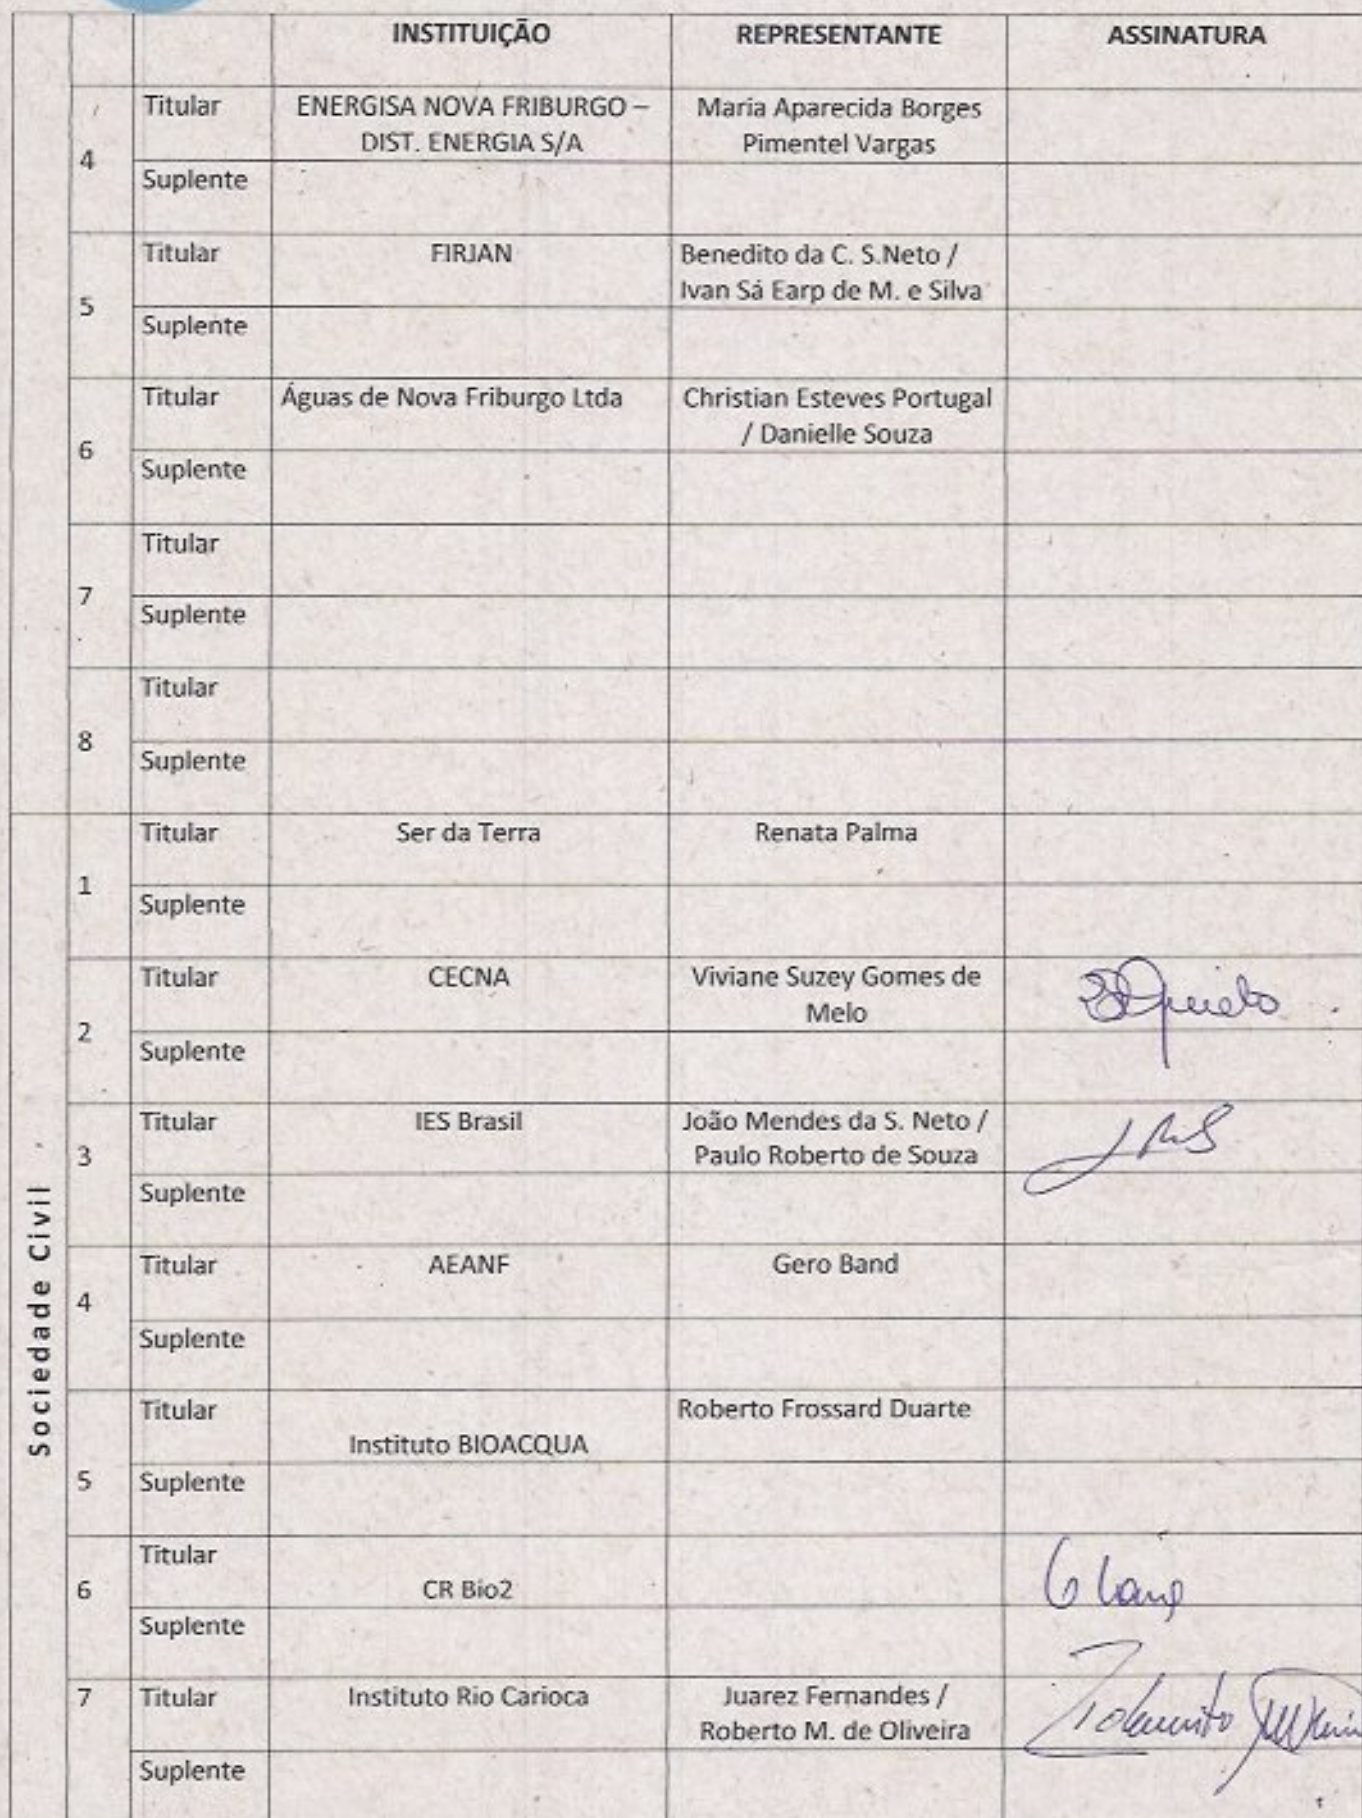 INSTITUIÇÃO REPRESENTANTE ASSINATURA
4
Titular ENERGISA NOVA FRIBURGO – Maria Aparecida Borges
DIST. ENERGIA S/A Pimentel Vargas
Suplente
5
Titular FIRJAN Benedito da C. S.Neto /
Ivan Sá Earp de M. e Silva
Suplente
6
Titular Águas de Nova Friburgo Ltda Christian Esteves Portugal
/ Danielle Souza
Suplente
7
Titular
Suplente
8
Titular
Suplente
Sociedade Civil
1
Titular Ser da Terra Renata Palma
Suplente
2
Titular CECNA Viviane Suzey Gomes de
Melo
Suplente
3
Titular IES Brasil João Mendes da S. Neto /
Paulo Roberto de Souza
Suplente
4
Titular AEANF Gero Band
Suplente
5
Titular Roberto Frossard Duarte
Instituto BIOACQUA
Suplente
6
Titular
CR Bio2
Suplente
7 Titular Instituto Rio Carioca Juarez Fernandes /
Roberto M. de Oliveira
Suplente